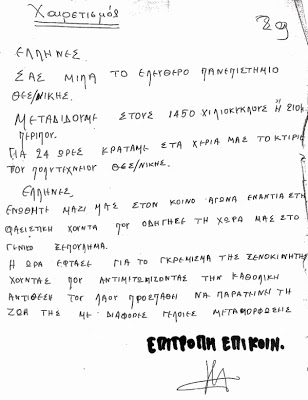 Χαιρετισμός
29
ΕΛΛΗΝΕΣ.
ΣΑΣ ΜΙΛΑ ΤΟ ΕΛΕΥΘΕΡΟ ΠΑΝΕΠΙΣΤΗΜΙΟ
ΘΕΣ/ΝΙΚΗΣ.
ΜΕΤΑΔΙΔΟΥΜΕ ΣΤΟΥΣ 1450 ΧΙΛΙΟΚΥΚΛΟΥΣ Ή 210Μ
ΠΕΡΙΠΟΥ.
ΓΙΑ 24 ΩΡΕΣ ΚΡΑΤΑΜΕ ΣΤΑ ΧΕΡΙΑ ΜΑΣ ΤΟ ΚΤΙΡΙΟ
ΤΟΥ ΠΟΛΥΤΕΧΝΕΙΟΥ ΘΕΣ/ΝΙΚΗΣ.
ΕΛΛΗΝΕΣ,
ΕΝΩΘΗΤΕ ΜΑΖΙ ΜΑΣ ΣΤΟΝ ΚΟΙΝΟ ΑΓΩΝΑ ΕΝΑΝΤΙΑ ΣΤΗ
ΦΑΣΙΣΤΙΚΗ ΧΟΥΝΤΑ ΠΟΥ ΟΔΗΓΗΣΕ ΤΗ ΧΩΡΑ ΜΑΣ ΣΤΟ
ΓΕΝΙΚΟ ΞΕΠΟΥΛΗΜΑ.
Η ΩΡΑ ΕΦΤΑΣΕ ΓΙΑ ΤΟ ΓΚΡΕΜΙΣΜΑ ΤΗΣ ΞΕΝΟΚΙΝΗΤΗΣ
ΧΟΥΝΤΑΣ ΠΟΥ ΑΝΤΙΜΕΤΩΠΙΖΟΝΤΑΣ ΤΗΝ ΚΑΘΟΛΙΚΗ
ΑΝΤΙΘΕΣΗ ΤΟΥ ΛΑΟΥ ΠΡΟΣΠΑΘΗ ΝΑ ΠΑΡΑΤΕΙΝΗ ΤΗ
ΖΩΗ ΤΗΣ ΜΕ ΔΙΑΦΟΡΕΣ ΓΕΛΟΙΕΣ ΜΕΤΑΜΟΡΦΩΣΕΙΣ
ΕΠΙΤΡΟΠΗ ΕΠΙΚΟΙΝ.